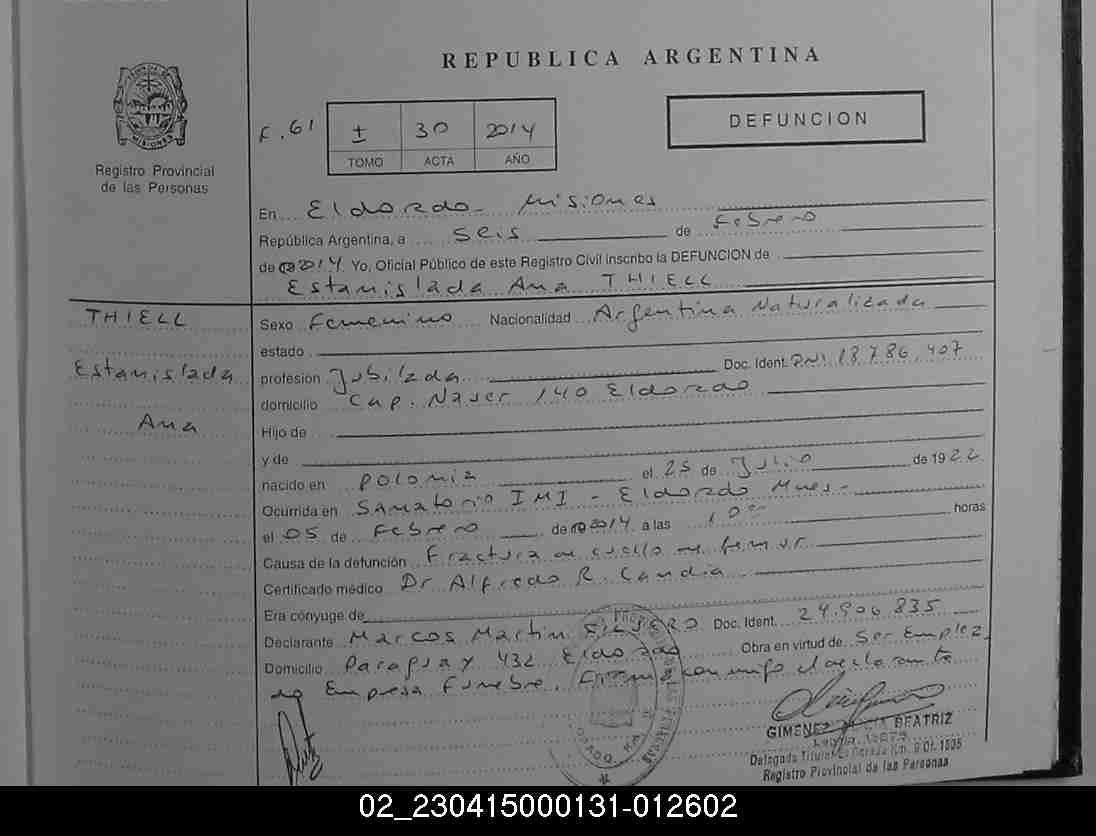 REPUBLICA ARGENTINA
Registro Provincial
de las Personas
F. 61
30 2014
TOMO ACTA AÑO
DEFUNCION
En Eldorado - Misiones
República Argentina, a seis de Febrero
de 2014 Yo, Oficial Público de este Registro Civil inscribo la DEFUNCION de
Estanislada Ana THIELL
THIELL
Estanislada
Ana
Sexo Femenino Nacionalidad Argentina Naturalizada
estado
profesión Jubilada Doc. Ident. DNI 18786.407
domicilio Cap. 140 Eldorado
Hijo de
y de
nacido en Polonia el 25 de Julio de 1922
Ocurrida en Sanatorio IMI - Eldorado Mnes -
el 05 de Febrero de 2014 a las horas
Causa de la defunción Fractura de cuello de femur
Certificado médico Dr Alfredo R. Candia
Era cónyuge de
Declarante Marcos Martin Doc. Ident. 24.906.835
Domicilio Paraguay 432 Eldorado Obra en virtud de Ser Emplea
do Empresa Funebre. conmigo el declarante
GIMENEZ BEATRIZ
Registro Provincial de las Personas
02_230415000131-012602